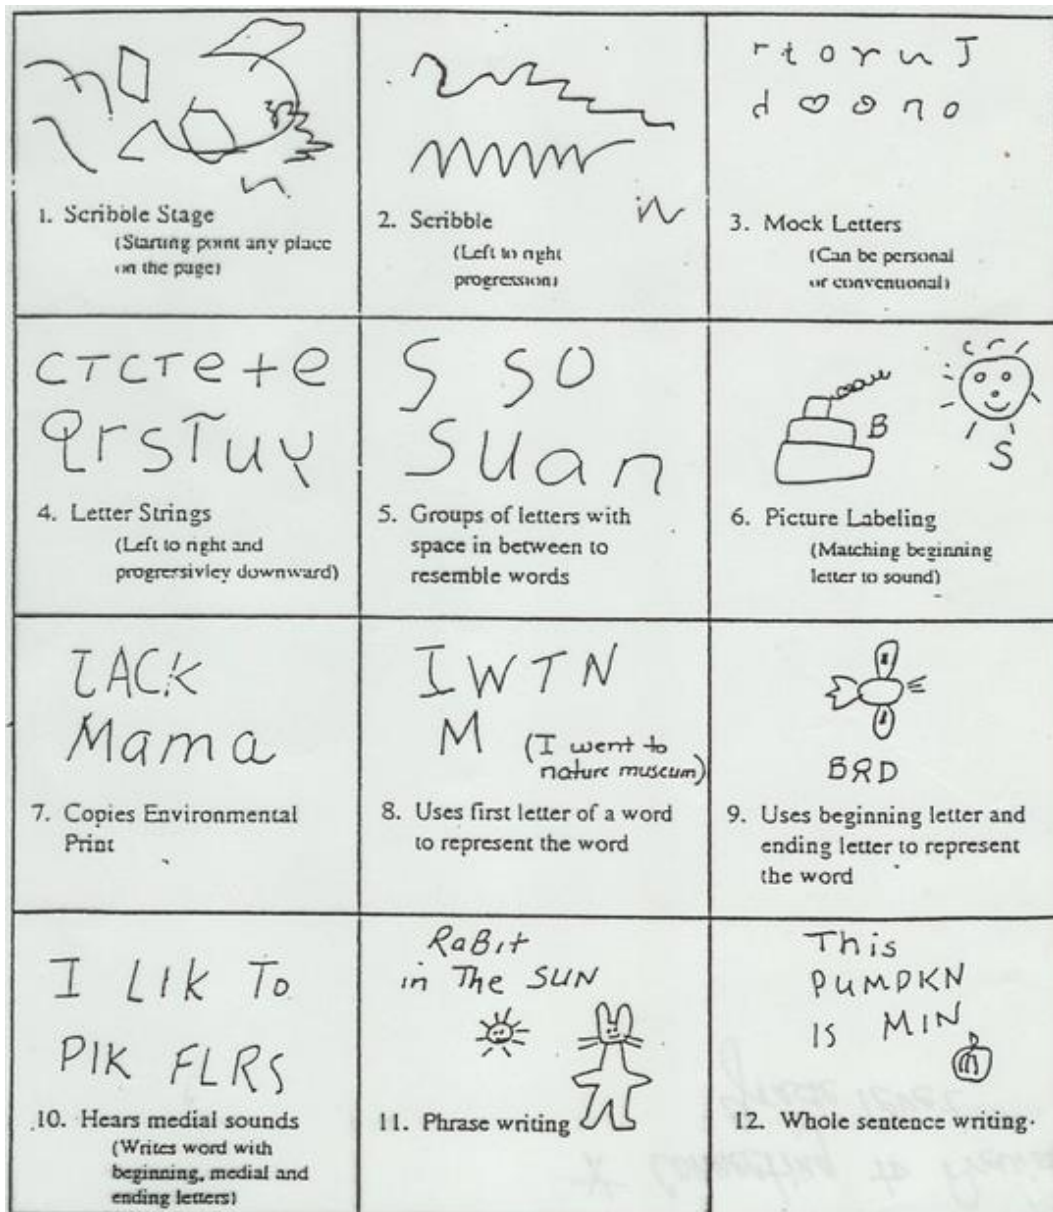 1. Scribble Stage
(Starting point any place
on the page)
2. Scribble
(Left to right
progression)
r t o r u J
d ♡ o n o
3. Mock Letters
(Can be personal
or conventional)
CTCTe+e
QrSTuy
4. Letter Strings
(Left to right and
progressivley downward)
S SO
SUan
5. Groups of letters with
space in between to
resemble words
B
S
6. Picture Labeling
(Matching beginning
letter to sound)
ZACK
Mama
7. Copies Environmental
Print
I W T N
M (I went to
nature museum)
8. Uses first letter of a word
to represent the word
BRD
9. Uses beginning letter and
ending letter to represent
the word
I LIK To
PIK FLRS
10. Hears medial sounds
(Writes word with
beginning, medial and
ending letters)
RaBit
in The SUN
11. Phrase writing
This
PUMPKN
IS MIN
12. Whole sentence writing.